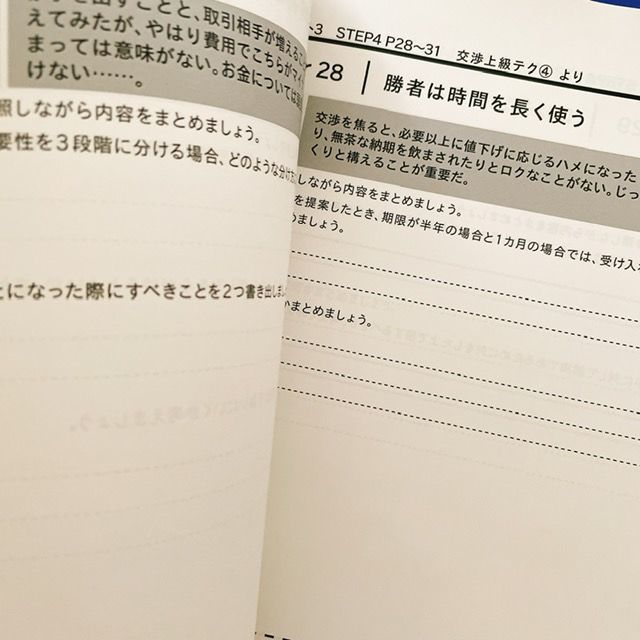 を出すことと、取引相手が増えるこ
えてみたが、やはり費用でこちらがマイ
まっては意味がない。お金については
けない……。
照しながら内容をまとめましょう。
要性を3段階に分ける場合、どのような分け方
とになった際にすべきことを2つ書き出しまし
-3 STEP4 P28～31 交渉上級テク④ より
28 勝者は時間を長く使う
交渉を焦ると、必要以上に値下げに応じるハメになった
り、無茶な納期を飲まされたりとロクなことがない。じっ
くりと構えることが重要だ。
しながら内容をまとめましょう。
を提案したとき、期限が半年の場合と1カ月の場合では、受け入
めましょう。
まとめましょう。